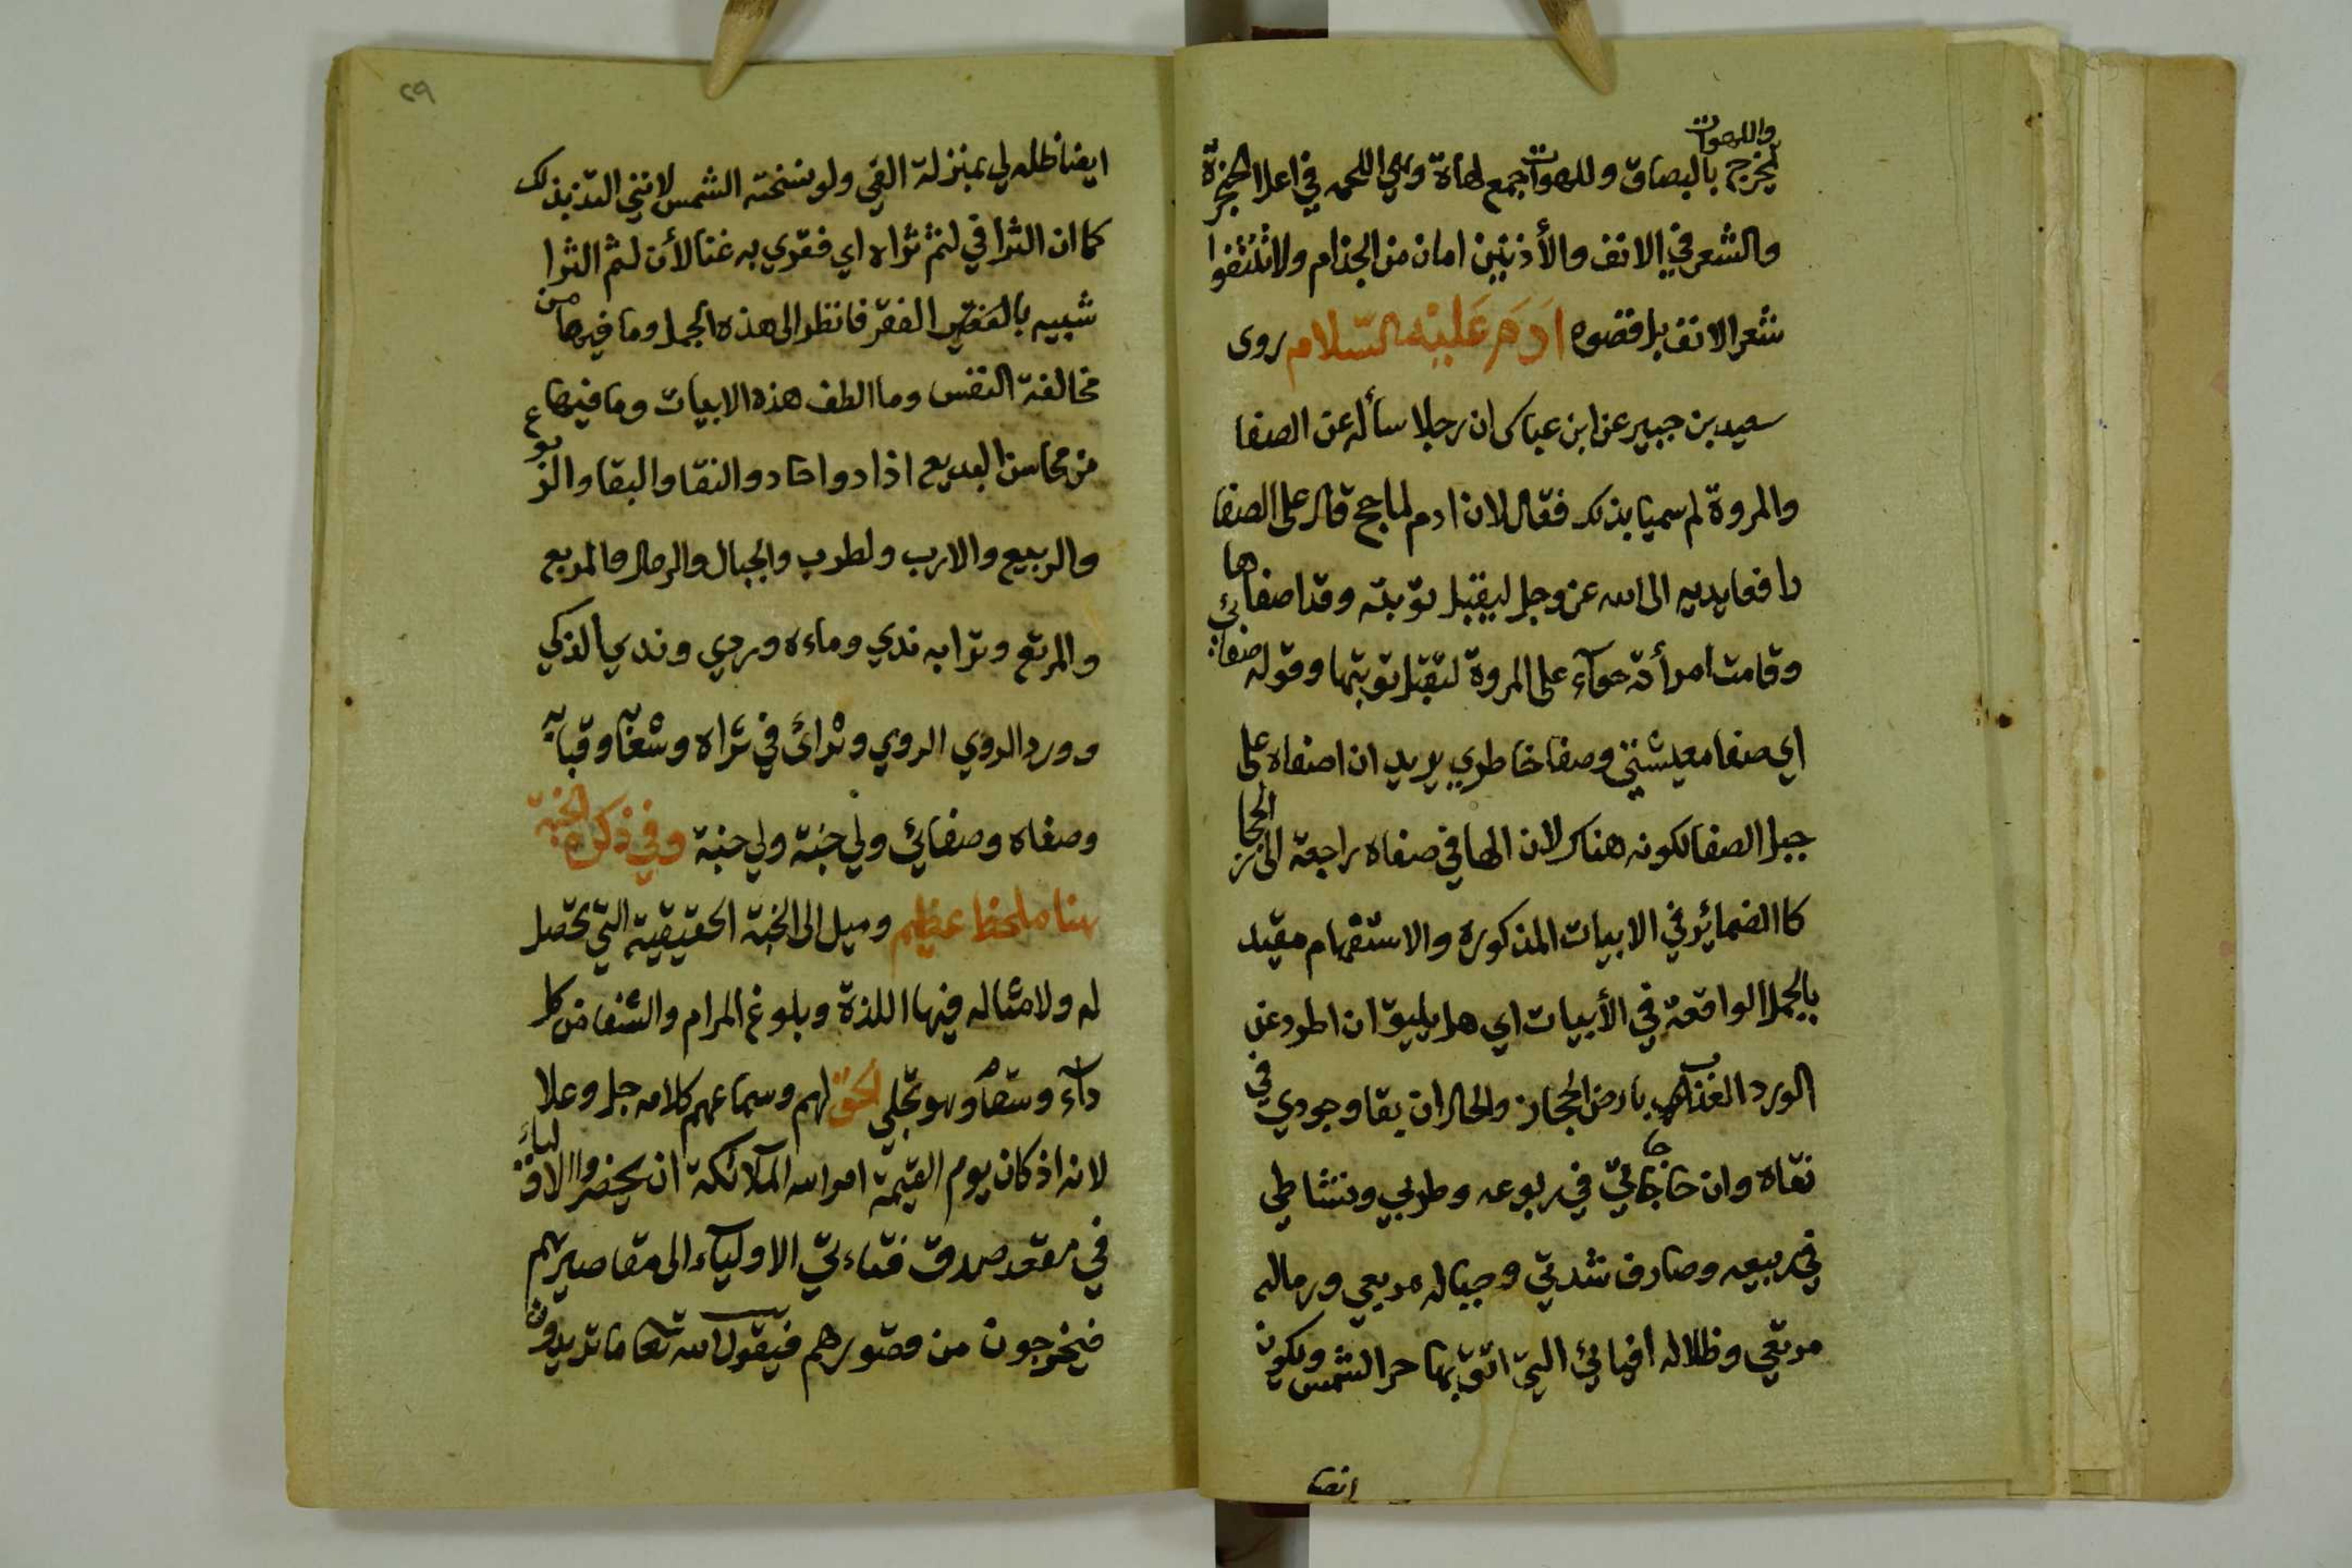 واللهوات
يخرج بالبصاق وللهوات جمع لهاة وهي اللحمه في اعلا الحنجرة
والشعر في الانف والأذنين امان من الجذام ولا تنتفوا
شعر الانف بل قصوه ادَم عَليْه السّلام روى
سعيد بن جبير عن ابن عباس ان رجلا سأله عن الصفا
والمروة لم سميتا بذلك فقال لان ادم لما حج قال على الصفا
رافعا يديه الى الله عز وجل ليقبل توبته وقد اصفاها
وقامت امرأته حوآء على المروة لتقبل توبتها وقوله صفائي
اي صفا معيشتي وصفا خاطري يريد ان اصفاه على
جبل الصفا لكونه هناك لان الها في صفاه راجعة الى الحجاز
كالضمائر في الابيات المذكوره والاستفهام مقيد
بالجمل الواقعة في الأبيات اي هل يليق ان اطرد عن
الورد العذب بارض الحجاز والحال ان بقا وجودي في
نقاه وان حاجاتي في ربوعه وطربي ونشاطي
في ربيعه وصارف شدتي وجباله مربعي ورماله
مرتعي وظلاله افيائي التي اتق بها حر الشمس ويكون
ايضا
٢٩
ايضا ظله لي بمنزلة الفي ولو نسخته الشمس لانني التذ بذلك
كما ان الثرا في لثم ثراه اي فقري به غنا لأن لثم الثرا
شبيه بالفقر فانظر الى هذه الجمل وما فيها من
مخالفة النفس وما الطف هذه الابيات وما فيها
من محاسن البديع اذادوا حاد والنقا والبقا والربوع
والربيع والارب ولطرب والجبال والرمال والمربع
والمرتع وترابه ندي وماءه وردي وندي الذكي
وورد الروي الروي وثرائ في ثراه وشعابه وقبابه
وصفاه وصفائي ولي جنة ولي جنة وفي ذكره الجنة
هنا ملحظ عظيم وميل الى الجنة الحقيقية التي تحصل
له ولامثاله فيها اللذة وبلوغ المرام والشفا من كل
دآء وسقام وهو تجلي الحق لهم وسماعهم كلامه جل وعلا
لانه اذ كان يوم القيمة امر الله الملآئكة ان يحضروا الاوليآء
في مقعد صدق فتاءتي الاوليآء الى مقاصيرهم
فيخرجون من قصورهم فيقول الله تعا ما تريدون